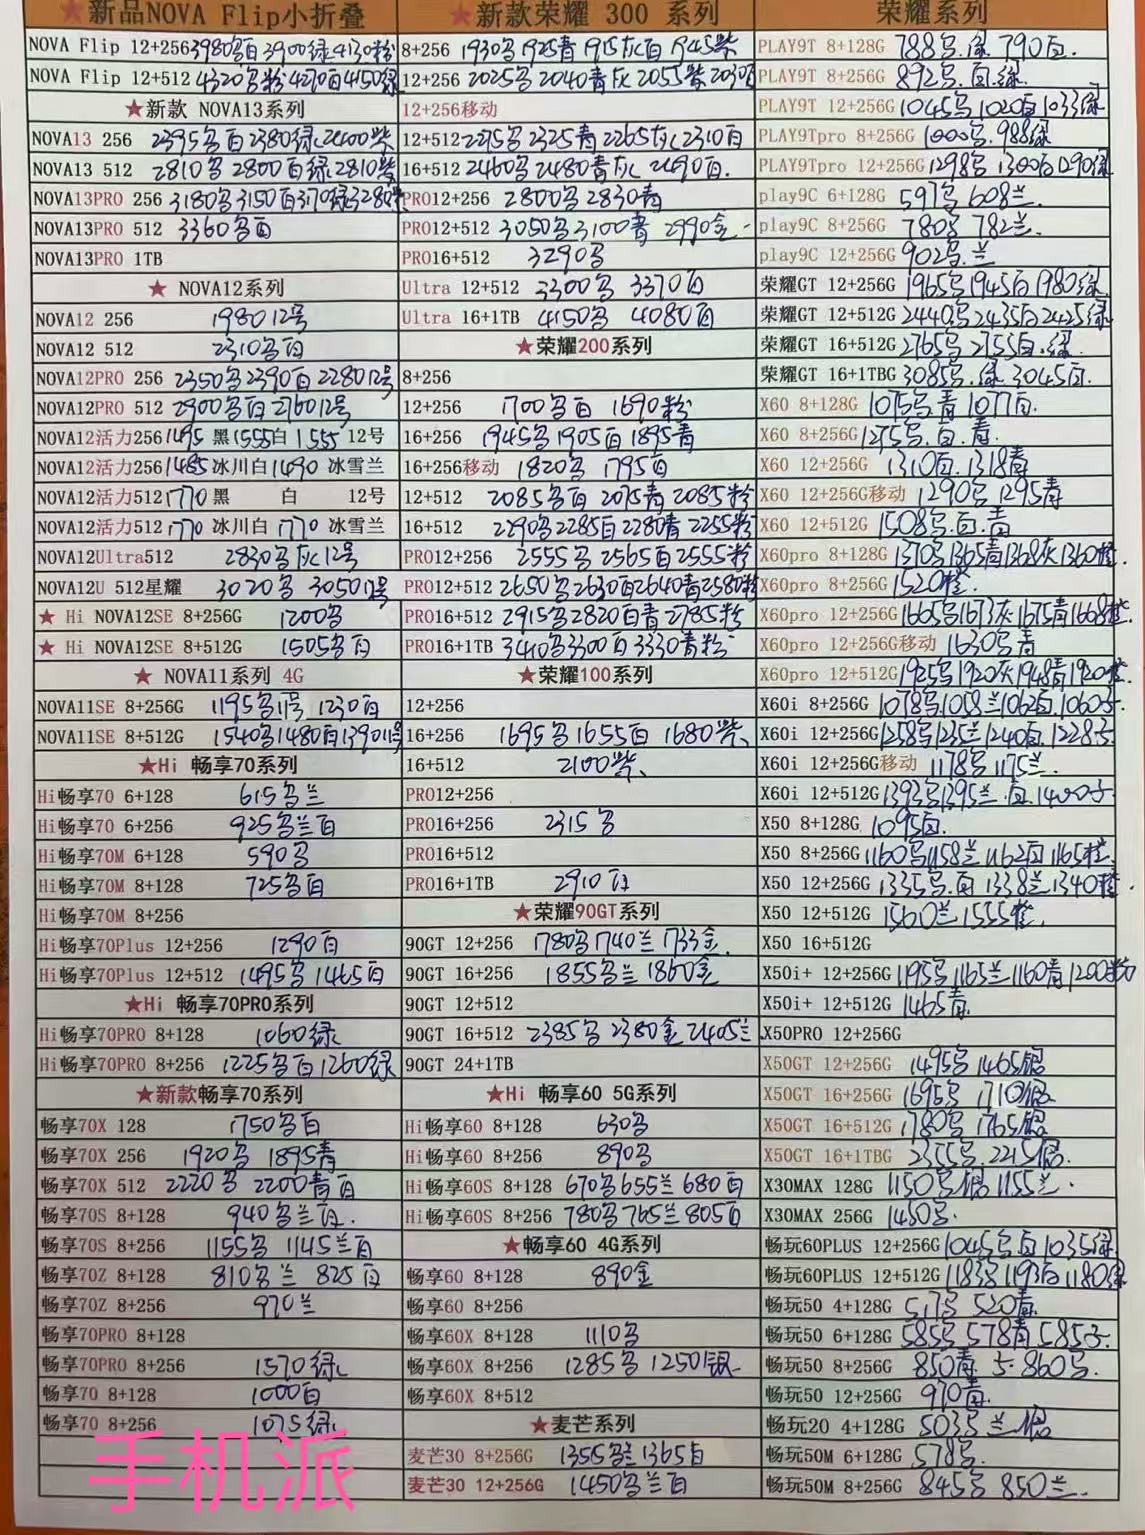 ★新品NOVA Flip小折叠
NOVA Flip 12+256 3980鸟白3900绿4130粉
NOVA Flip 12+512 4320鸟粉4290白4150绿
★新款 NOVA13系列
NOVA13 256 2395鸟白2380绿2400紫
NOVA13 512 2810鸟2800白绿2810紫
NOVA13PRO 256 3180鸟3150百3170绿
NOVA13PRO 512 3360鸟白
NOVA13PRO 1TB
★ NOVA12系列
NOVA12 256 1980 12号
NOVA12 512 2310鸟百
NOVA12PRO 256 2350鸟2390百2280 12号
NOVA12PRO 512 2900鸟百2760 12号
NOVA12活力256 1495 黑1555白1555 12号
NOVA12活力256 1485 冰川白1490 冰雪兰
NOVA12活力512 1770 黑 白 12号
NOVA12活力512 1770 冰川白 1770 冰雪兰
NOVA12Ultra512 2830鸟灰12号
NOVA12U 512星耀 3020鸟 3050 12号
★ Hi NOVA12SE 8+256G 1200鸟
★ Hi NOVA12SE 8+512G 1505鸟百
★ NOVA11系列 4G
NOVA11SE 8+256G 1195鸟11号 1230百
NOVA11SE 8+512G 1540鸟1480百1390 11号
★Hi 畅享70系列
Hi畅享70 6+128 615鸟兰
Hi畅享70 6+256 925鸟兰百
Hi畅享70M 6+128 590鸟
Hi畅享70M 8+128 725鸟百
Hi畅享70M 8+256
Hi畅享70Plus 12+256 1290百
Hi畅享70Plus 12+512 1495鸟 1465百
★Hi 畅享70PRO系列
Hi畅享70PRO 8+128 1060绿
Hi畅享70PRO 8+256 1225鸟百1260绿
★新款畅享70系列
畅享70X 128 1750鸟百
畅享70X 256 1920鸟 1895青
畅享70X 512 2220鸟 2200青百
畅享70S 8+128 940鸟兰百.
畅享70S 8+256 1155鸟 1145兰百
畅享70Z 8+128 810鸟兰 825百
畅享70Z 8+256 970兰
畅享70PRO 8+128
畅享70PRO 8+256 1570绿
畅享70 8+128 1000百
畅享70 8+256 1075绿
手机派
★新款荣耀 300 系列
8+256 1930鸟1925青1915灰百1945紫
12+256 2025鸟2040青灰2055紫2030百
12+256移动
12+512 2275鸟2325青2265灰2310百
16+512 2460鸟2480青灰2490百.
PRO12+256 2800鸟2830青
PRO12+512 3050鸟3100青 2990金
PRO16+512 3290鸟
Ultra 12+512 3300鸟 3370百
Ultra 16+1TB 4150鸟 4080百
★荣耀200系列
8+256
12+256 1700鸟百 1690粉
16+256 1945鸟1905百1895青
16+256移动 1820鸟 1795百
12+512 2085鸟百2075青2085粉
16+512 2290鸟2285百2280青2255粉
PRO12+256 2555鸟2565百2555粉
PRO12+512 2650鸟2630百2640青2580粉
PRO16+512 2915鸟2820百青2785粉
PRO16+1TB 3410鸟3300百3330青粉
★荣耀100系列
12+256
16+256 1695鸟1655百 1680紫
16+512 2100紫
PRO12+256
PRO16+256 2315鸟
PRO16+512
PRO16+1TB 2910百
★荣耀90GT系列
90GT 12+256 1780鸟1740兰1733金
90GT 16+256 1855鸟兰1860金
90GT 12+512
90GT 16+512 2385鸟2380金2405兰
90GT 24+1TB
★Hi 畅享60 5G系列
Hi畅享60 8+128 630鸟
Hi畅享60 8+256 890鸟
Hi畅享60S 8+128 670鸟655兰680百
Hi畅享60S 8+256 780鸟765兰805百
★畅享60 4G系列
畅享60 8+128 890金
畅享60 8+256
畅享60X 8+128 1110鸟
畅享60X 8+256 1285鸟1250银
畅享60X 8+512
★麦芒系列
麦芒30 8+256G 1355鸟兰1365百
麦芒30 12+256G 1450鸟兰百
荣耀系列
PLAY9T 8+128G 788鸟.绿 790百.
PLAY9T 8+256G 892鸟.百.绿
PLAY9T 12+256G 1045鸟1020百1033绿
PLAY9Tpro 8+256G 1000鸟.988绿
PLAY9Tpro 12+256G 1298鸟1300百1290绿
play9C 6+128G 597鸟608兰.
play9C 8+256G 780鸟 782兰.
play9C 12+256G 902鸟.兰
荣耀GT 12+256G 1965鸟1945百1980绿
荣耀GT 12+512G 2440鸟2435百2425绿
荣耀GT 16+512G 2765鸟2755百.绿
荣耀GT 16+1TBG 3085鸟.绿 3045百.
X60 8+128G 1075鸟青1077百.
X60 8+256G 1275鸟.百.青
X60 12+256G 1310百.1318青
X60 12+256G移动 1290鸟1295青
X60 12+512G 1508鸟.百.青
X60pro 8+128G 1370鸟1365青1368灰1360橙.
X60pro 8+256G 1520橙.
X60pro 12+256G 1665鸟1673灰1675青1668橙.
X60pro 12+256G移动 1630鸟青
X60pro 12+512G 1925鸟1920灰1948青1920橙.
X60i 8+256G 1078鸟1058兰1062百.1060子.
X60i 12+256G 1258鸟1235兰1240百.1228子
X60i 12+256G移动 1178鸟1175兰.
X60i 12+512G 1393鸟1395兰.百.1400子.
X50 8+128G 1095百.
X50 8+256G 1160鸟1158兰1162百1165橙.
X50 12+256G 1335鸟.百 1338兰1340橙.
X50 12+512G 1560兰1555橙.
X50 16+512G
X50i+ 12+256G 1195鸟1165兰1160青1200粉
X50i+ 12+512G 1465青.
X50PRO 12+256G
X50GT 12+256G 1495鸟1465银
X50GT 16+256G 1695鸟 1710银
X50GT 16+512G 1780鸟 1765银
X50GT 16+1TBG 2355鸟.2215银.
X30MAX 128G 1150鸟银1155兰.
X30MAX 256G 1450鸟.
畅玩60PLUS 12+256G 1045鸟百1035绿
畅玩60PLUS 12+512G 1183鸟1193百1180绿
畅玩50 4+128G 517鸟 520青.
畅玩50 6+128G 585鸟578青585子.
畅玩50 8+256G 850青 860鸟.
畅玩50 12+256G 970青.
畅玩20 4+128G 503鸟兰 银
畅玩50M 6+128G 578鸟.
畅玩50M 8+256G 845鸟 850兰.